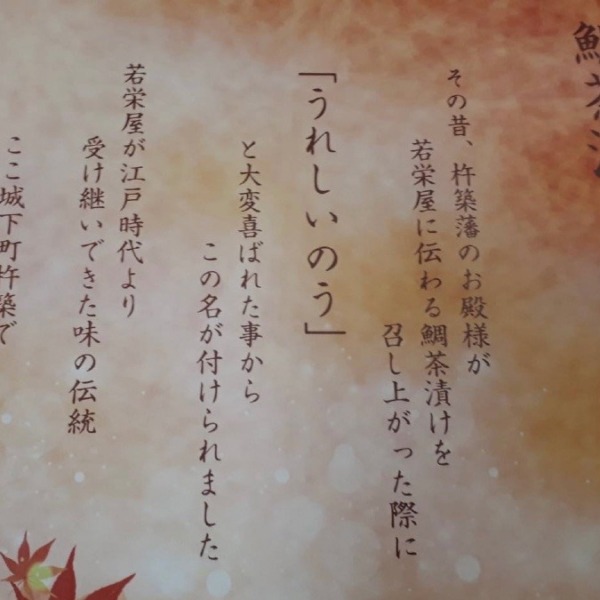 鯛茶漬
その昔、杵築藩のお殿様が
若栄屋に伝わる鯛茶漬けを
召し上がった際に
「うれしいのう」
と大変喜ばれた事から
この名が付けられました
若栄屋が江戸時代より
受け継いできた味の伝統
ここ城下町杵築で